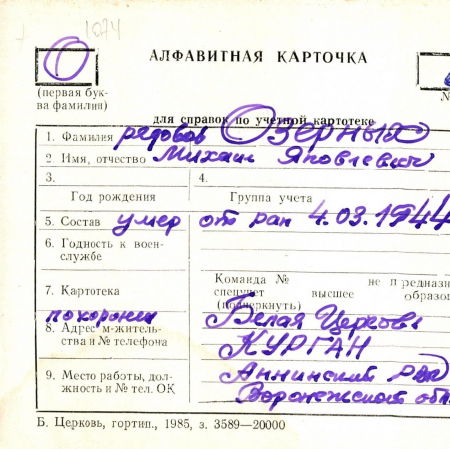 1074
АЛФАВИТНАЯ КАРТОЧКА
О
(первая бук-
ва фамилии)
№
для справок по учетной картотеке
1. Фамилия рядовой Озерных
2. Имя, отчество Михаил Яковлевич
3.
4.
Год рождения
Группа учета
5. Состав умер от ран 4.03.1944
6. Годность к воен-
службе
7. Картотека
Команда № не предназ
спецучет высшее образо
(подчеркнуть)
похоронен Белая Церковь
8. Адрес м-житель-
ства и № телефона
КУРГАН
9. Место работы, дол-
жность и № тел. ОК
Аннинский рвк
Воронежской обл
Б. Церковь, гортип., 1985, з. 3589—20000